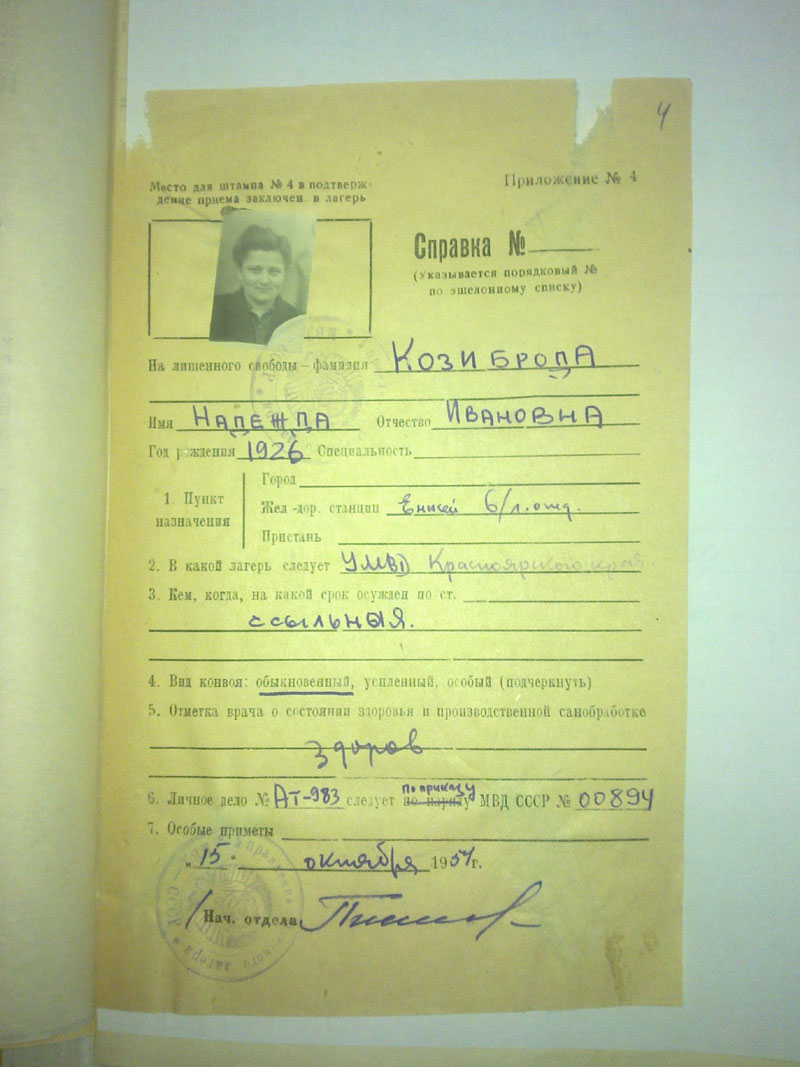 4
Место для штампа № 4 в подтверж-
дение приема заключен. в лагерь
Приложение № 4
Справка №
(Указывается порядковый №
по эшелонному списку)
На лишенного свободы – фамилия КОЗИБРОДА
Имя НАДЕЖДА Отчество ИВАНОВНА
Год рождения 1926 Специальность
1. Пункт назначения
Город
Жел.-дор. станции Енисей 6/л. отд.
Пристань
2. В какой лагерь следует УМВД Красноярского края
3. Кем, когда, на какой срок осужден по ст.
ссыльная.
4. Вид конвоя: обыкновенный, усиленный, особый (подчеркнуть)
5. Отметка врача о состоянии здоровья и производственной санобработке
здоров
6. Личное дело № АТ-983 следует по наряду по приказу МВД СССР № 00894
7. Особые приметы
„15" октября 1951 г.
Нач. отдела